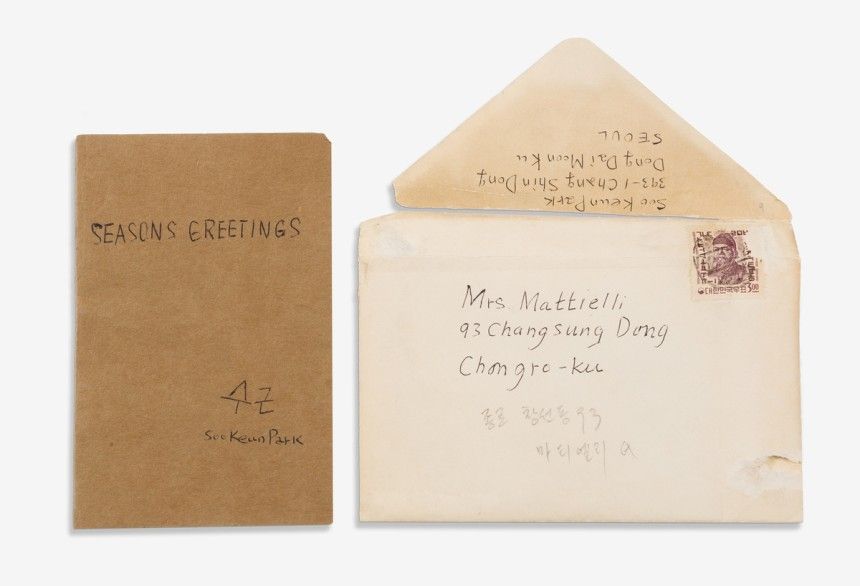 SEASONS GREETINGS
SooKeunPark
Soo Keun Park
393-1 Chang Shin Dong
Dong Dai Moon Ku
SEOUL
대한민국우표 3.00
Mrs. Mattielli
93 Changsung Dong
Chongro-ku
종로 창선동 93
마티엘리